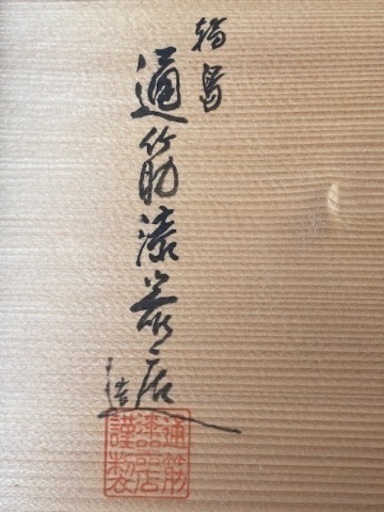 輪島
通筋漆器店
造
通筋
漆器店
謹製